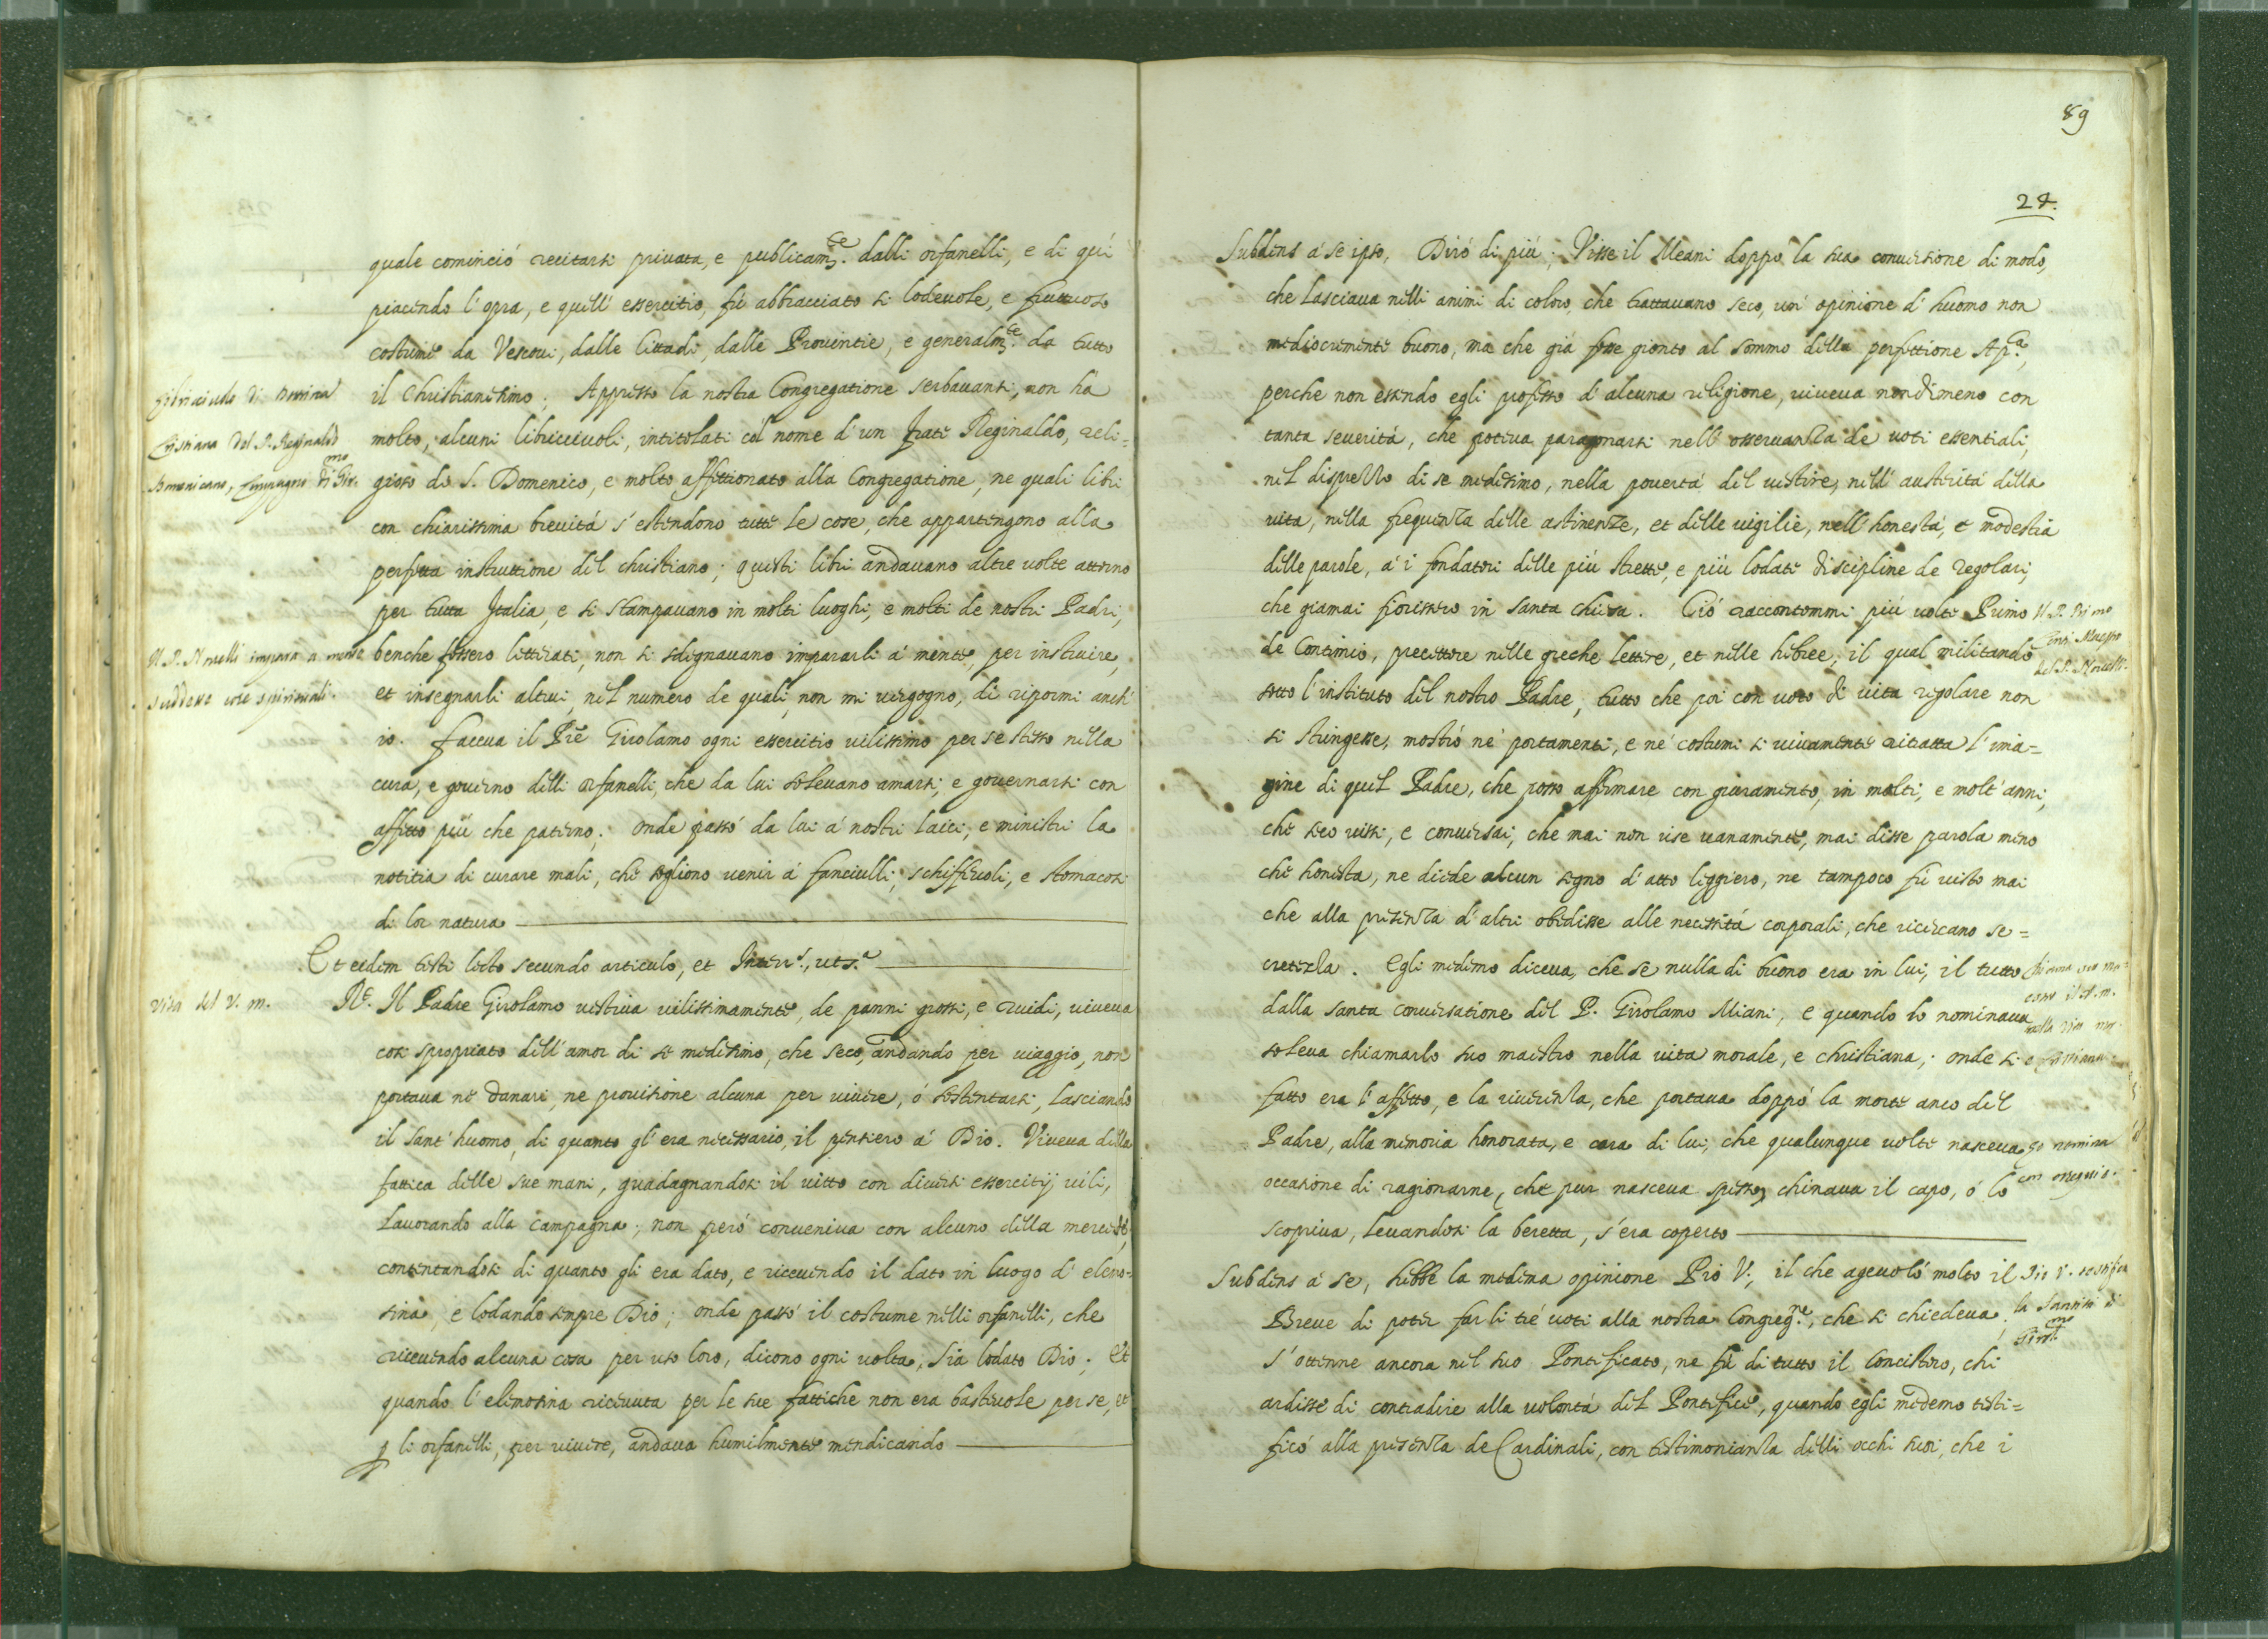 quale cominciò recitarsi privata, e publicam.te dalli orfanelli, e di quì
piacendo l'opra, e quell'essercitio, fù abbracciato si lodevole, e fruttuoso
costume da Vescovi, dalle Cittadi, dalle Provintie, e generalm.te da tutto
il Christianesimo; Appresso la nostra Congregatione serbavansi, non hà
molto, alcuni libriccivoli, intitolati col nome d'un frate Reginaldo, reli=
gioso do S. Domenico, e molto affettionato alla Congregatione, ne quali libri
con chiarissima brevità s'estendono tutte le cose, che appartengono alla
perfetta instruttione del christiano; questi libri andavano altre volte attorno
per tutta Italia, e si stampavano in molti luoghi, e molti de nostri Padri,
benche fossero litterati, non si sdignavano impararli à mente, per instruire,
et insegnarli altrui, nel numero de quali, non mi vergogno, di ripormi anch'
io. faceva il Pre Girolamo ogni essercitio vilissimo per se stesso nella
cura, e governo delli orfanelli, che da lui solevano amarsi, e governarsi con
affetto più che paterno; onde passò da lui à nostri laici, e ministri la
notitia di curare mali, che sogliono venir à fanciulli, schiffevoli, e stomacosi
di lor natura
Et eidem testi lecto secundo articulo, et Interr.s, ut s.a
R.e Il Padre Girolamo vestiva vilissimamente, de panni grossi, e ruidi, viveva
cosi spropriato dell'amor di se medesimo, che seco, andando per viaggio, non
portava ne danari, ne provisione alcuna per vivere, ò sostentarsi, lasciando
il sant'huomo, di quanto gl'era necessario, il pensiero à Dio. Viveva della
fattica delle sue mani, guadagnandosi il vitto con diversi essercitij vili,
lavorando alla campagna; non però conveniva con alcuno della mercede,
contentandosi di quanto gli era dato, e ricevendo il dato in luogo d'elemo=
sina, e lodando sempre Dio; onde passò il costume nelli orfanelli, che
ricevendo alcuna cosa per uso loro, dicono ogni volta, sia lodato Dio; Et
quando l'elemosina ricevuta per le sue fattiche non era bastevole per se, et
p li orfanelli, per vivere, andava humilmente mendicando
Christiana del P. Reginaldo
Il P. Novelli impara a mente
vita del V. m.
89
24.
Subdens à se ipso, Dirò di più; Visse il Meani doppo la sua conversione di modo,
che lasciava nelli animi di coloro, che trattavano seco, un'opinione d'huomo non
mediocremente buono, ma che già fosse gionto al sommo della perfettione Ap.ca,
perche non essendo egli professo d'alcuna religione, viveva nondimeno con
tanta severità, che poteva paragonarsi nell'osservanza de voti essentiali,
nel disprezzo di se medesimo, nella povertà del vestire, nell'austerità della
vita, nella frequenza delle astinenze, et delle vigilie, nell'honestà, et modestia
delle parole, à i fondatori delle più strette, e più lodate discipline de Regolari,
che giamai fiorissero in santa chiesa. Ciò raccontommi più volte Primo
de Contimio, precettore nelle greche lettere, et nelle hebree, il qual militando
sotto l'instituto del nostro Padre, tutto che poi con voto di vita regolare non
si stringesse, mostrò nè portamenti, e nè costumi si vivamente ritratta l'ima=
gine di quel Padre, che posso affermare con giuramento, in molti, e molt'anni,
che seco vissi, e conversai, che mai non rise vanamente, mai disse parola meno
che honesta, ne diede alcun segno d'atto leggiero, ne tampoco fù visto mai
che alla presenza d'altri obedisse alle necessità corporali, che ricercano se=
cretezza. Egli medemo diceva, che se nulla di buono era in lui, il tutto
dalla santa conversatione del P. Girolamo Miani, e quando lo nominava
soleva chiamarlo suo maestro nella vita morale, e christiana; onde si
fatto era l'affetto, e la riverenza, che portava doppò la morte anco del
Padre, alla memoria honorata, e cara di lui, che qualunque volte nasceva
occasione di ragionarne, che pur nasceva spesso, chinava il capo, ò lo
scopriva, levandosi la beretta, s'era coperto
Subdens à se, hebbe la medema opinione Pio V., il che agevolò molto il
Breve di poter far li tré voti alla nostra Congreg.ne, che si chiedeva.
S'ottenne ancora nel suo Pontificato, ne fù di tutto il Concistoro, chi
ardisse di contradire alla volontà del Pontefice, quando egli medemo testi=
ficò alla presenza de Cardinali, con testimonianza delli occhi suoi, che i
Il P. Primo
Conti Maestro
del P. Novelli.
lo nomina
con ossequio.
Pio V. testifica
la santità di